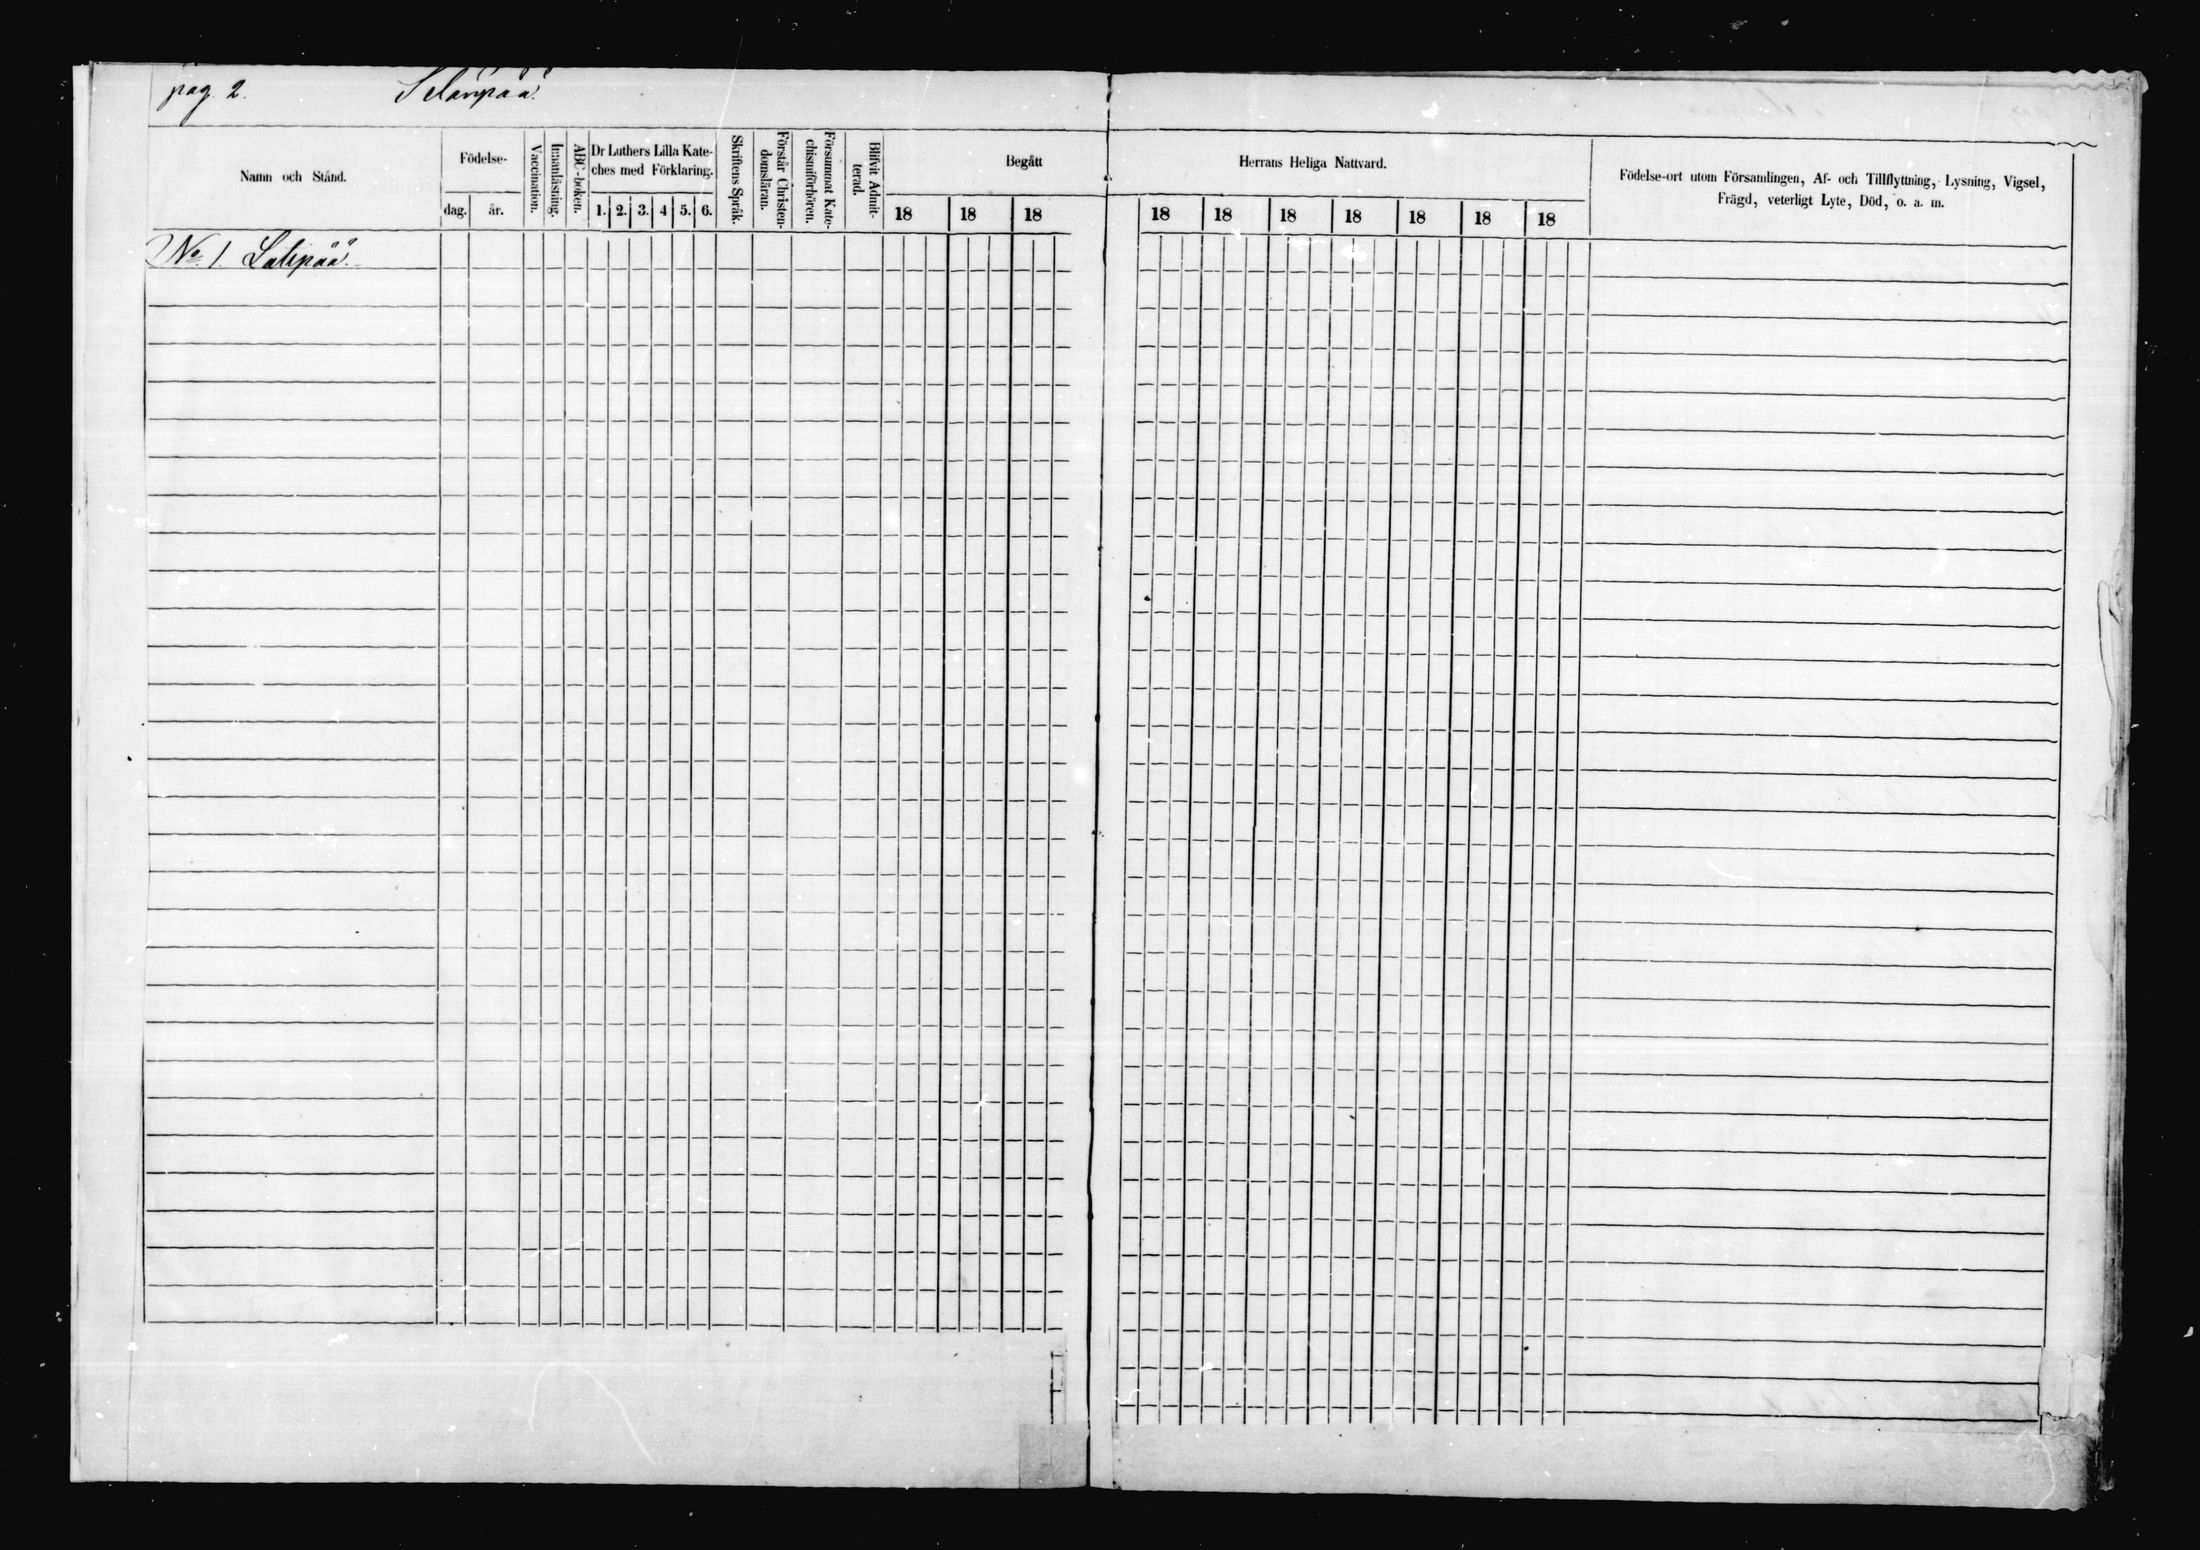 pag. 2. Selänpää.
Namn och Stånd.
Födelse-
dag. år.
Vaccination.
Innanläsning.
ABC-boken.
Dr Luthers Lilla Kate-
ches med Förklaring.
1. 2. 3. 4 5. 6.
Skriftens Språk.
Förstår Christen-
domsläran.
Försummat Kate-
chismiförhören.
Blifvit Admit-
terad.
Begått
18 18 18
Herrans Heliga Nattvard.
18 18 18 18 18 18 18
Födelse-ort utom Församlingen, Af- och Tillflyttning, Lysning, Vigsel,
Frägd, veterligt Lyte, Död, o. a. m.
No. 1.